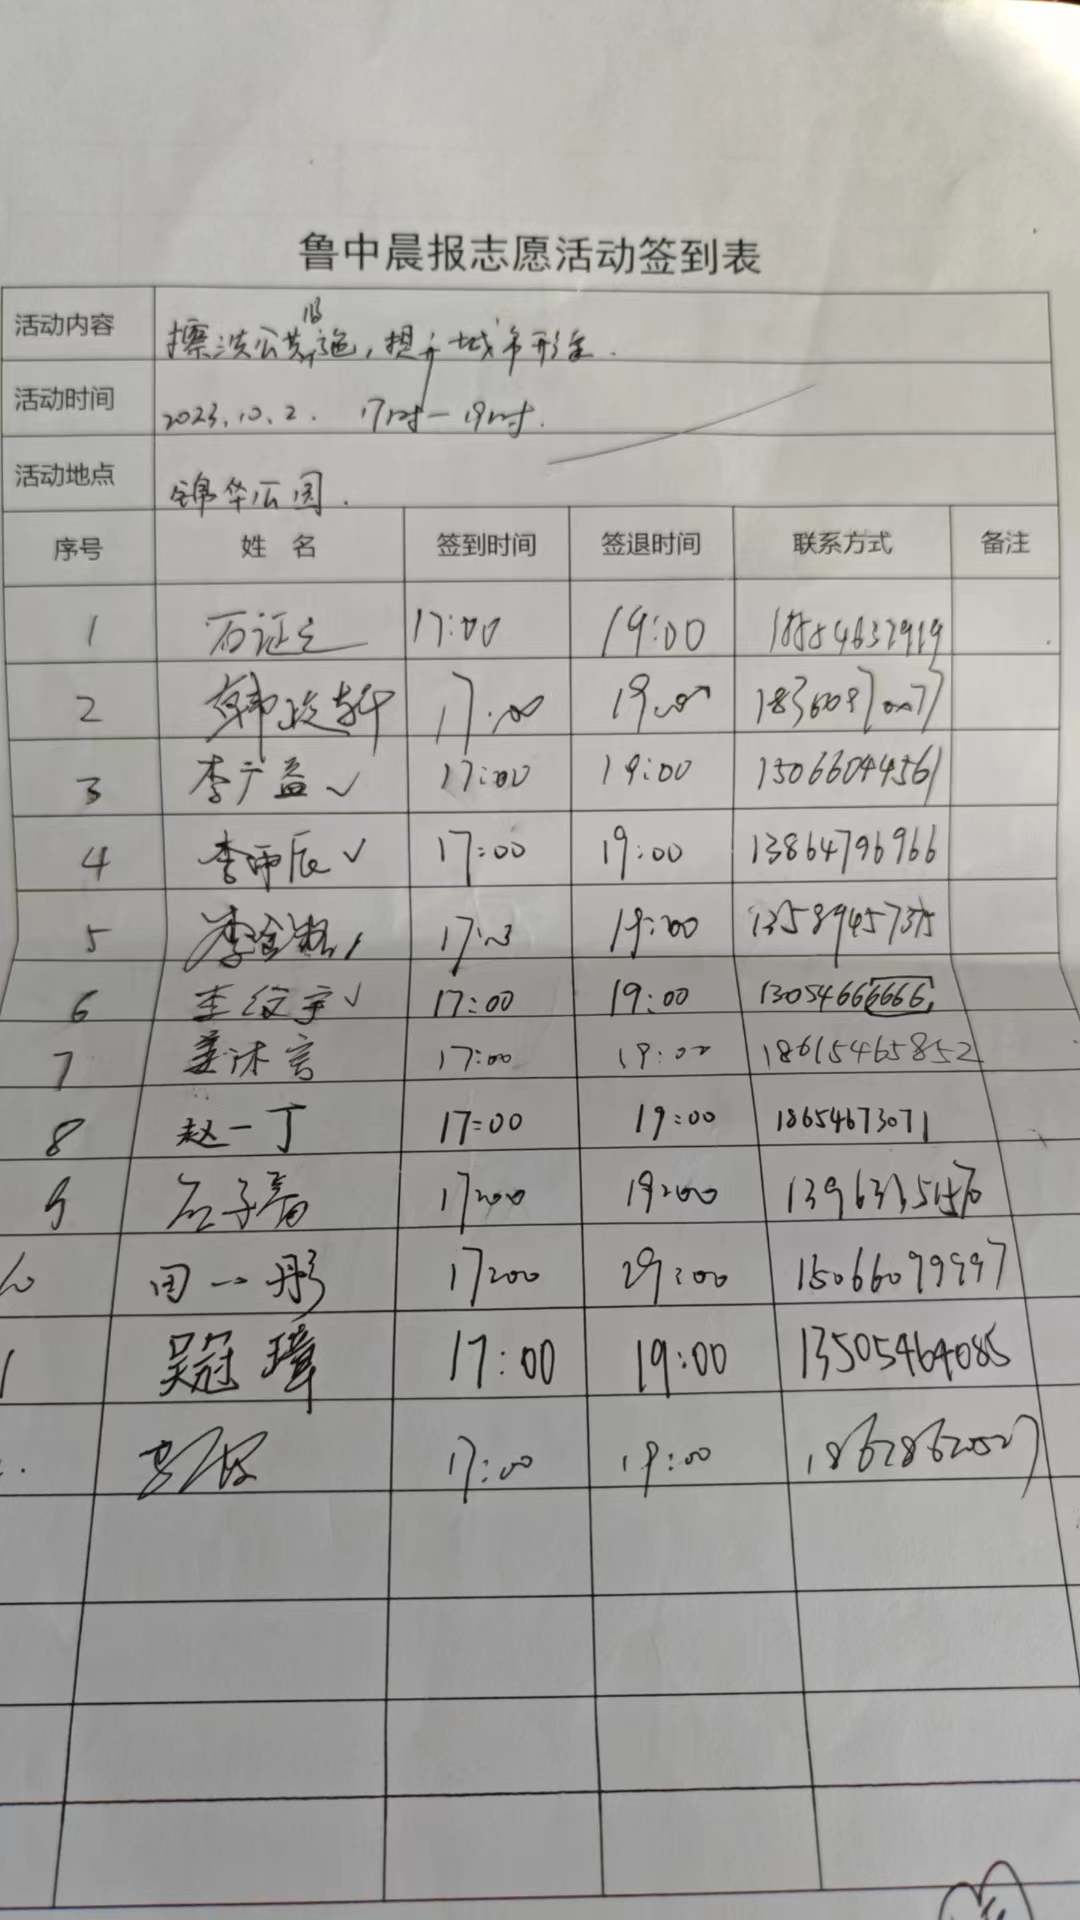 鲁中晨报志愿活动签到表
活动内容 擦洗公共设施，提升城市形象.
活动时间 2023.10.2. 17时-19时.
活动地点 锦华公园.
序号 姓 名 签到时间 签退时间 联系方式 备注
1 石证之 17:00 19:00
2 韩政轩 17:00 19:00
3 李广益 ✓ 17:00 19:00 15066044561
4 李雨辰 ✓ 17:00 19:00 13864796966
5 19:00 13589457375
6 李纹宇 ✓ 17:00 19:00 13054666666
7 姜沐言 17:00 19:00 18615465852
8 赵一丁 17:00 19:00 18654673071
9 17:00 19:00
田一彤 17:00 29:00 15066079997
吴冠璋 17:00 19:00 13505464085
17:00 19:00